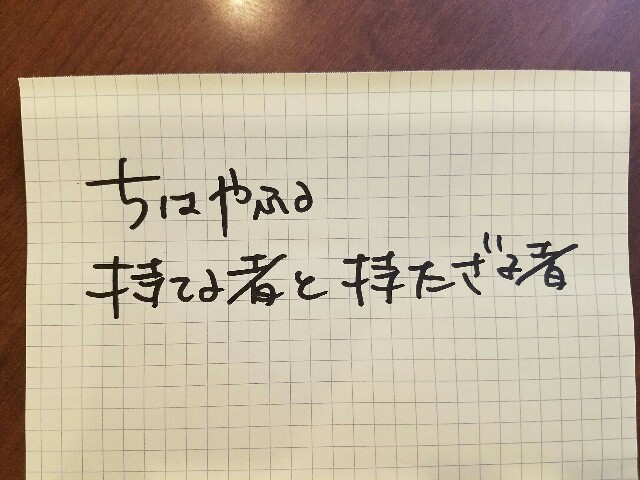 ちはやふる
持てる者と持たざる者